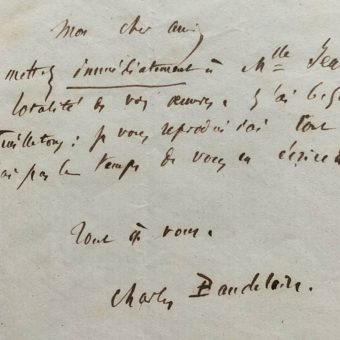 Mon cher ami,
mettez immédiatement à Mlle Jea
totalité de vos œuvres. J'ai bes
feuilletons ; je vous reproduirai tout
ai pas le temps de vous en écrire
Tout à vous.
Charles Baudelaire.